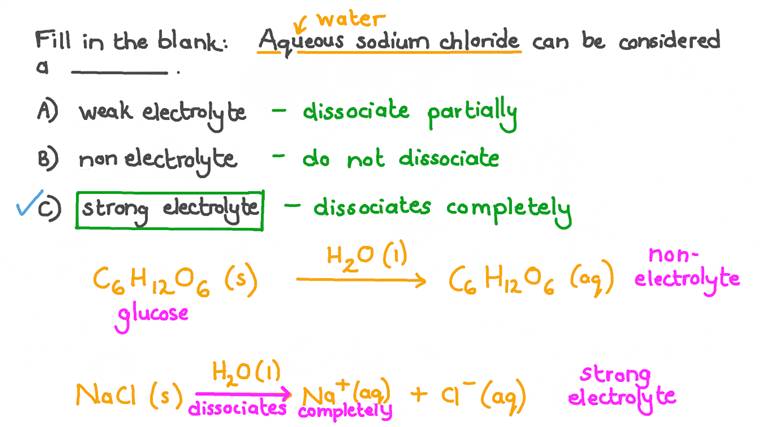 water
Fill in the blank: Aqueous sodium chloride can be considered
a ________ .
A) weak electrolyte – dissociate partially
B) non electrolyte – do not dissociate
C) strong electrolyte – dissociates completely
H₂O (l)
C₆H₁₂O₆ (s) → C₆H₁₂O₆ (aq) non-
electrolyte
glucose
H₂O (l)
NaCl (s) → Na⁺(aq) + Cl⁻(aq) strong
electrolyte
dissociates completely